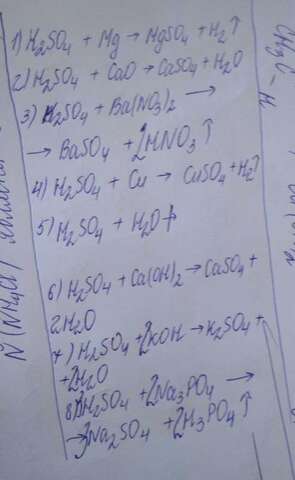 1) H₂SO₄ + Mg → MgSO₄ + H₂↑
2) H₂SO₄ + CaO → CaSO₄ + H₂O
3) H₂SO₄ + Ba(NO₃)₂ →
→ BaSO₄ + 2HNO₃↑
4) H₂SO₄ + Cu → CuSO₄ + H₂↑
5) H₂SO₄ + H₂O
6) H₂SO₄ + Ca(OH)₂ → CaSO₄ +
2H₂O
7) H₂SO₄ + 2KOH → K₂SO₄ +
+2H₂O
8) H₂SO₄ + 2Na₃PO₄ →
→ 3Na₂SO₄ + 2H₃PO₄↑
(NH₄Cl)